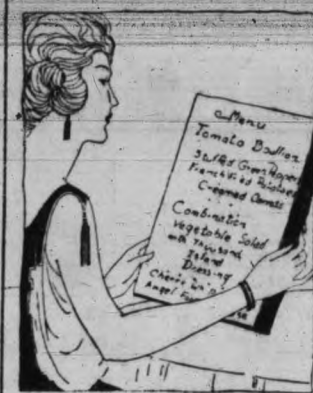 Menu
Tomato Bullion
Stuffed Green Peppers
French Fried Potatoes
Creamed Carrots
Combination
Vegetable Salad
with Thousand
Island
Dressing
Angel